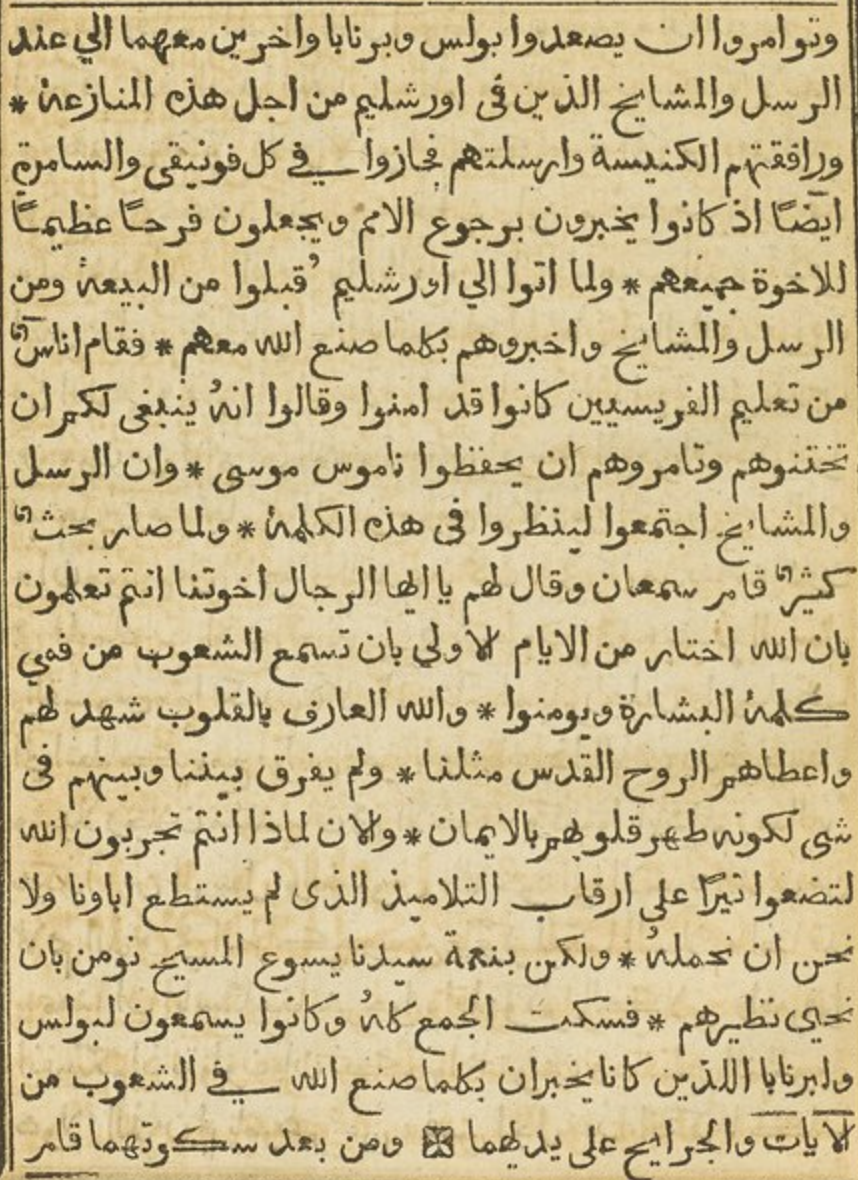 وتوامروا ان يصعدوا بولس وبرنابا واخرين معهما الي عند
الرسل والمشايخ الذين في اورشليم من اجل هذه المنازعة *
ورافقتهم الكنيسة وارسلتهم فجازوا في كل فونيقي والسامرة
ايضًا اذ كانوا يخبرون برجوع الامم ويجعلون فرحًا عظيمًا
للاخوة جميعهم * ولما اتوا الي اورشليم قُبلوا من البيعة ومن
الرسل والمشايخ واخبروهم بكلما صنع الله معهم * فقام اناسٌ
من تعليم الفريسيين كانوا قد امنوا وقالوا انهُ ينبغي لكم ان
تختنوهم وتامروهم ان يحفظوا ناموس موسى * وان الرسل
والمشايخ اجتمعوا لينظروا في هذه الكلمة * ولما صار بحثٌ
كثيرٌ قام سمعان وقال لهم يا ايها الرجال اخوتنا انتم تعلمون
بان الله اختار من الايام الاولي بان تسمع الشعوب من فمي
كلمة البشارة ويومنوا * والله العارف بالقلوب شهد لهم
واعطاهم الروح القدس مثلنا * ولم يفرق بيننا وبينهم في
شي لكونه طهر قلوبهم بالايمان * والان لماذا انتم تجربون الله
لتضعوا نيرًا على ارقاب التلاميذ الذى لم يستطع اباونا ولا
نحن ان نحملهُ * ولكن بنعمة سيدنا يسوع المسيح نومن بان
نحيى نظيرهم * فسكت الجمع كلهُ وكانوا يسمعون لبولس
ولبرنابا اللذين كانا يخبران بكلما صنع الله في الشعوب من
الايات والجرايح على يديهما ※ ومن بعد سكوتهما قام